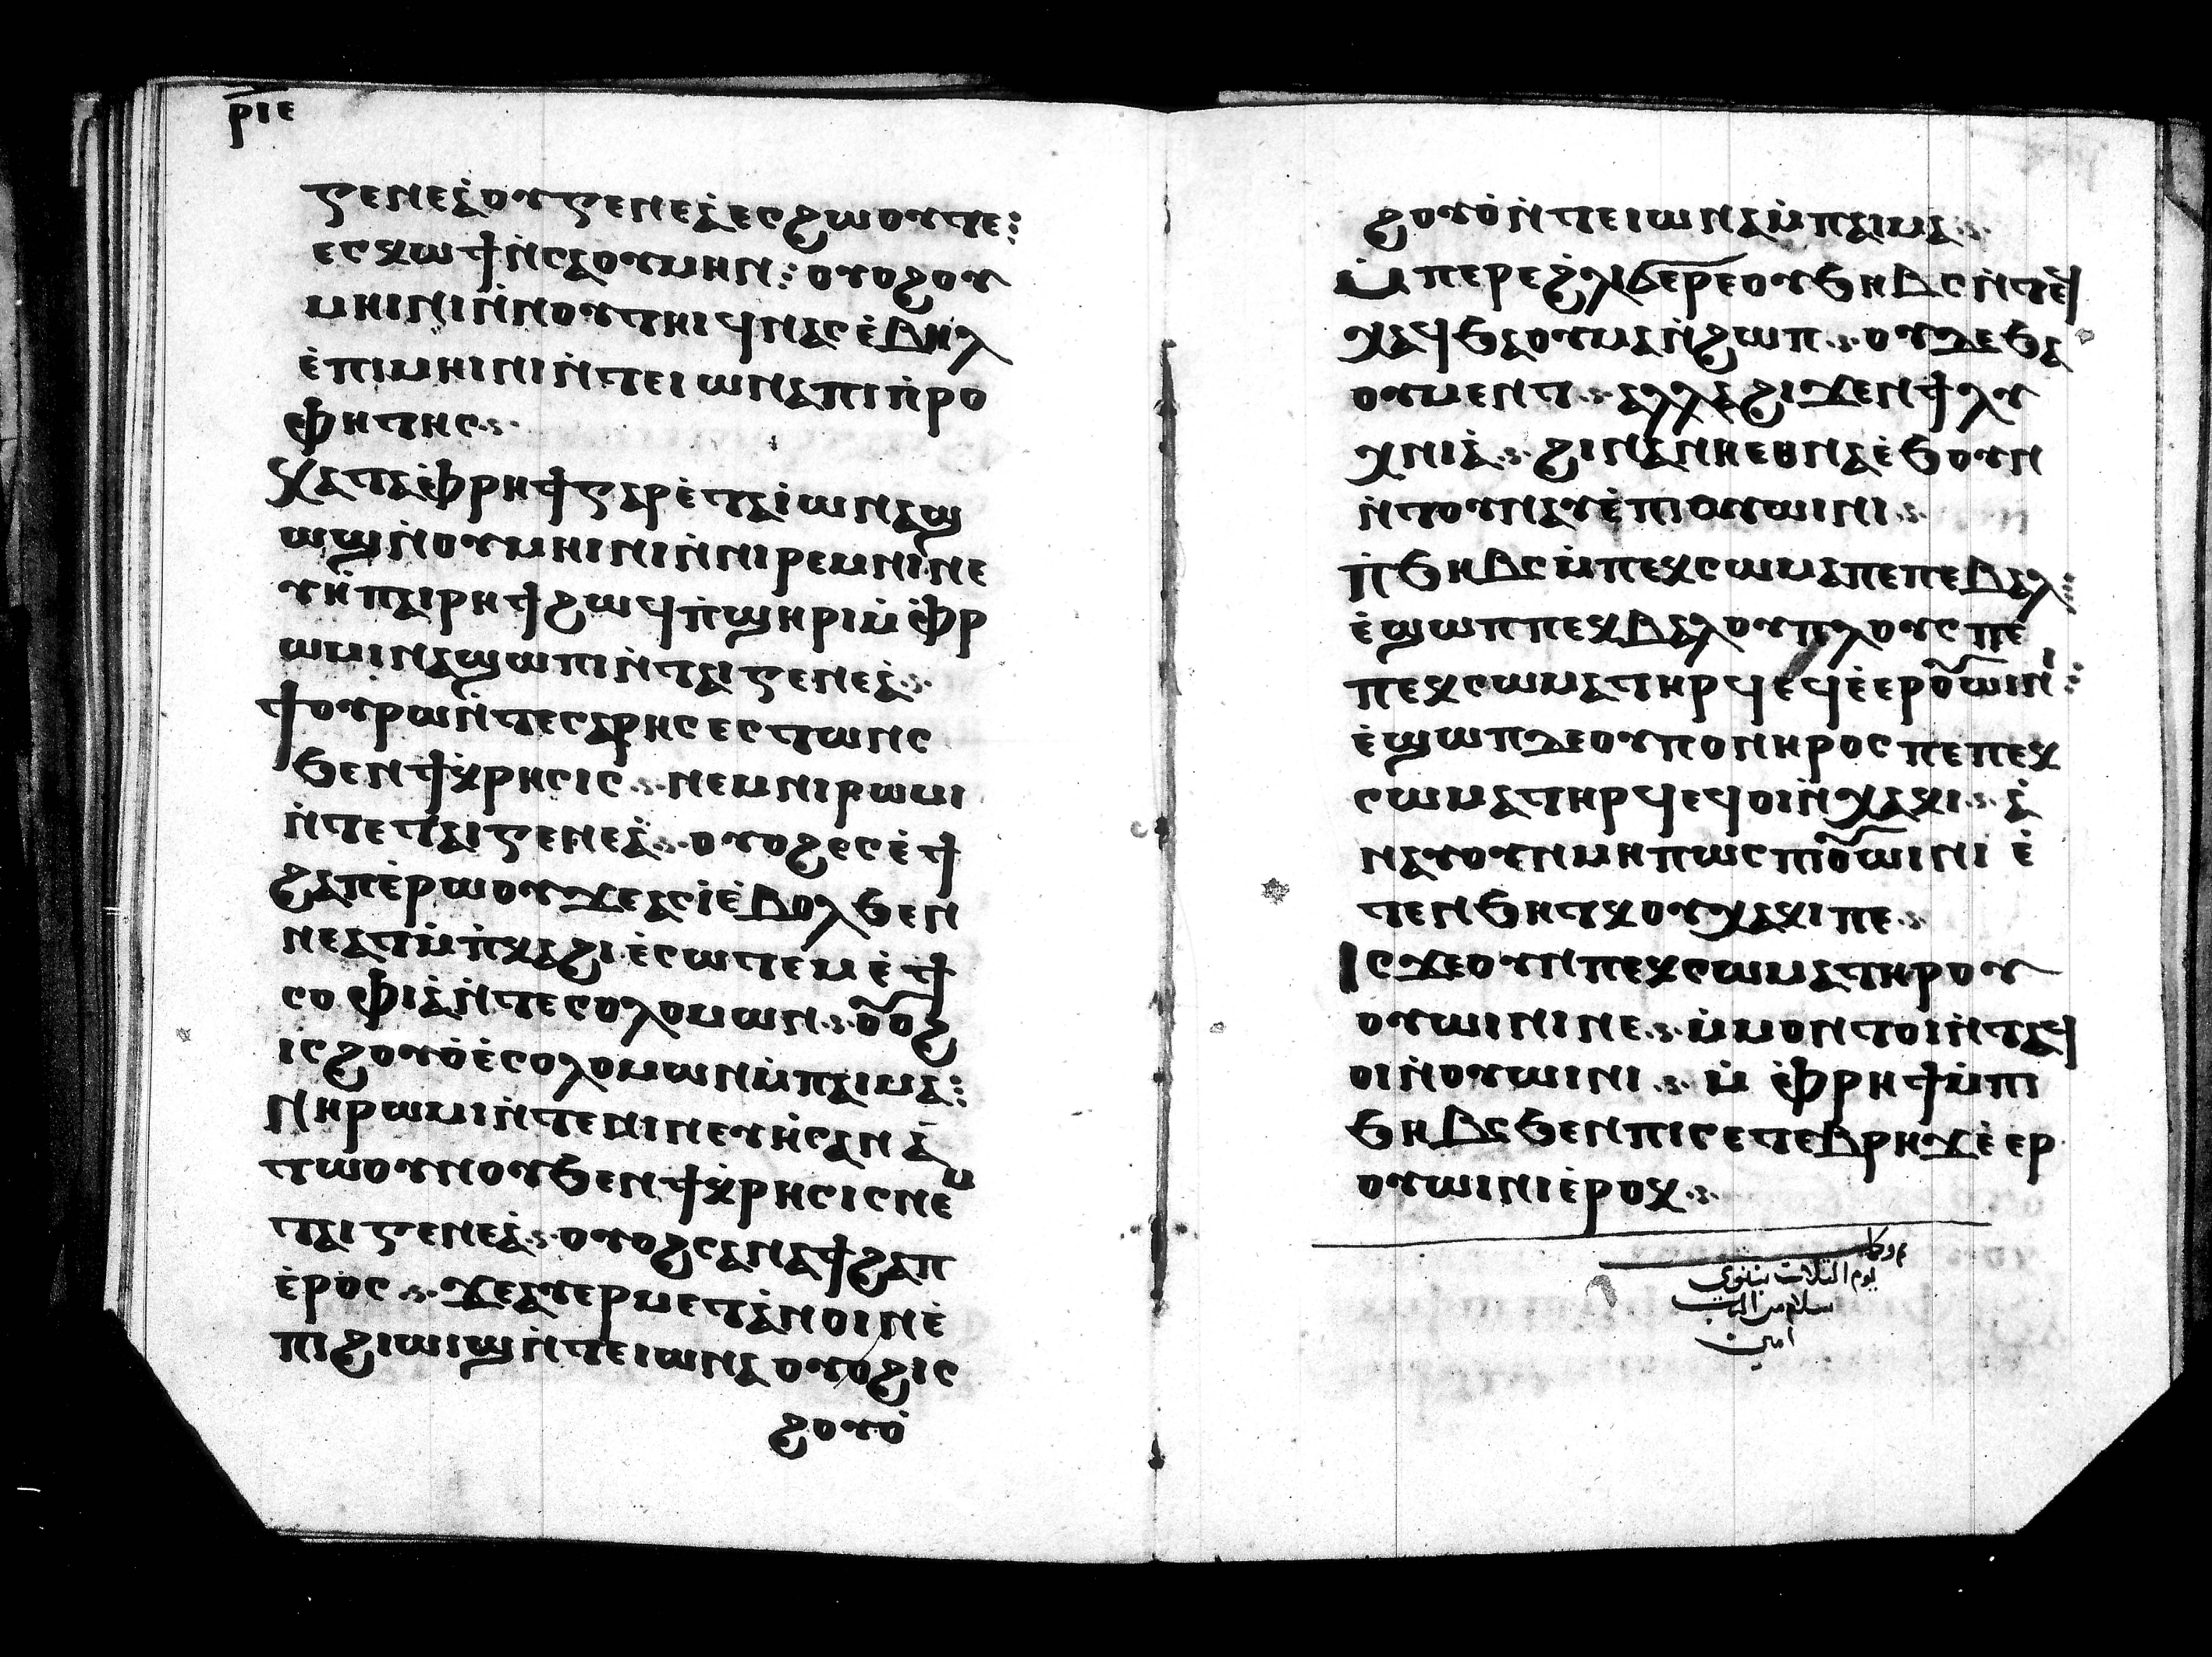 ⲣⲓⲉ
ⲅⲉⲛⲉⲁ̀ⲟⲩⲅⲉⲛⲉⲁ̀ⲉⲥϩⲱⲟⲩⲧⲉ:
ⲉⲥⲕⲱϯⲛ̀ⲥⲁⲟⲩⲙⲏⲛ: ⲟⲩⲟϩⲟⲩ
ⲙⲏⲓⲛⲓⲛ̀ⲛⲟⲩⲧⲏⲓϥⲛⲁⲥⲉ̀ⲃⲏⲗ
ⲉ̀ⲡⲓⲙⲏⲓⲛⲓⲛ̀ⲧⲉⲓⲱⲛⲁⲡⲓⲡ̀ⲣⲟ
ⲫⲏⲧⲏⲥ
ⲕⲁⲧⲁⲉ̀ⲫⲣⲏϯⲅⲁⲣⲉ̀ⲧⲁⲓ̀ⲱⲛⲁϣ
ⲱϣⲛ̀ⲟⲩⲙⲏⲓⲛⲓⲛ̀ⲛⲓⲣⲉⲙⲛⲓⲛⲉ
ⲩⲏ̀ⲡⲁⲓⲣⲏϯϩⲱϥⲡ̀ϣⲏⲣⲓⲙ̀ⲉ̀ⲫⲣ
ⲱⲙⲓⲛⲁϣⲱⲡⲓⲛ̀ⲧⲁⲓⲅⲉⲛⲉⲁ̀
ϯⲟⲩⲣⲱⲛ̀ⲧⲉⲥⲁⲣⲏⲥⲉⲥⲧⲱⲛⲥ
ϧⲉⲛϯⲕ̀ⲣⲏⲥⲓⲥ ⲛⲉⲙⲛⲓⲣⲱⲙⲓ
ⲛ̀ⲧⲉⲧⲁⲓⲅⲉⲛⲉⲁ̀ ⲟⲩⲟϩⲉⲥⲉ̀ϯ
ϩⲁⲡⲉ̀ⲣⲱⲟⲩϫⲉⲁⲥⲓ̀ⲉ̀ⲃⲟⲗϧⲉⲛ
ⲛⲉⲁⲧⲙ̀ⲡ̀ⲕⲁϩⲓⲉ̀ⲥⲱⲧⲉⲙⲉ̀ϯ
ⲥⲟⲫⲓⲁ̀ⲛ̀ⲧⲉⲥⲟⲗⲟⲙⲱⲛ ⲟⲩⲟϩ
ⲓⲥϩⲟⲩⲟ̀ⲉ̀ⲥⲟⲗⲟⲙⲱⲛⲙ̀ⲡⲁⲓⲙⲁ:
ⲛⲏⲣⲱⲙⲓⲛ̀ⲧⲉⲛⲓⲛⲉⲩⲏ̀ⲥⲁⲛⲁ̀
ⲧⲱⲟⲩⲛⲟⲩϧⲉⲛϯⲕ̀ⲣⲏⲥⲓⲥⲛⲉⲙ
ⲧⲁⲓⲅⲉⲛⲉⲁ̀ ⲟⲩⲟϩⲥⲁⲛⲁϯϩⲁⲡ
ⲉ̀ⲣⲟⲥ ϫⲉⲁⲩⲉⲣⲙⲉⲧⲁ̀ⲛⲟⲓⲛⲉ̀
ⲡⲓϩⲓⲱⲓϣⲛ̀ⲧⲉⲓⲱⲛⲁ ⲟⲩⲟϩⲓⲥ
ϩⲟⲩⲟ̀
ϩⲟⲩⲟ̀ⲛ̀ⲧⲉⲓⲱⲛⲁⲙ̀ⲡⲁⲓⲙⲁ
ⲙ̀ⲡⲉⲣⲉϩ̀ⲗⲓϭⲉⲣⲉⲟⲩϧⲏⲃⲥⲛ̀ⲧⲉϥ
ⲭⲁϥϧⲁⲟⲩⲙⲁⲛ̀ϩⲱⲡ ⲟⲩⲇⲉϧⲁ
ⲟⲩⲙⲉⲛⲧ ⲁⲗⲗⲁϩⲓϫⲉⲛϯⲗⲩ
ⲭⲛⲓⲁ̀ ϩⲓⲛⲁⲛⲏⲉⲑⲛⲁⲉ̀ϧⲟⲩⲛ
ⲛ̀ⲧⲟⲩⲛⲁⲩⲉ̀ⲡⲓⲟⲩⲱⲓⲛⲓ
ⲡ̀ϧⲏⲃⲥⲙ̀ⲡⲉⲕⲥⲱⲙⲁⲡⲉⲡⲉⲃⲁⲗ:
ⲉ̀ϣⲱⲡⲡⲉⲕⲃⲁⲗⲟⲩⲡⲗⲟⲩⲥⲡⲉ
ⲡⲉⲕⲥⲱⲙⲁⲧⲏⲣϥⲉϥⲉ̀ⲉⲣⲟⲩⲱⲓⲛⲓ:
ⲉ̀ϣⲱⲡⲇⲉⲟⲩⲡⲟⲛⲏⲣⲟⲥⲡⲉⲡⲉⲕ
ⲥⲱⲙⲁⲧⲏⲣϥⲉϥⲟⲓⲛ̀ⲭⲁⲕⲓ ⲁ̀
ⲛⲁⲩⲟⲩⲛⲙⲏⲡⲱⲥⲡⲓⲟⲩⲱⲓⲛⲓ ⲉ̀
ⲧⲉⲛϧⲏⲧⲕⲟⲩⲭⲁⲕⲓⲡⲉ
ⲓⲥϫⲉⲟⲩⲛⲡⲉⲕⲥⲱⲙⲁⲧⲏⲣⲟⲩ
ⲟⲩⲱⲓⲛⲓⲛⲉ ⲙ̀ⲙⲟⲛⲧⲟⲓⲛ̀ⲧⲁϥ
ⲟⲓⲛ̀ⲟⲩⲱⲓⲛⲓ ⲙ̀ⲉ̀ⲫⲣⲏϯⲙ̀ⲡⲓ
ϧⲏⲃⲥϧⲉⲛⲡⲓⲥⲉⲧⲉⲃⲣⲏϫⲉ̀ⲉⲣ
ⲟⲩⲱⲓⲛⲓⲉ̀ⲣⲟⲕ
يوم التلات نينوى
سلام من الرب
امين